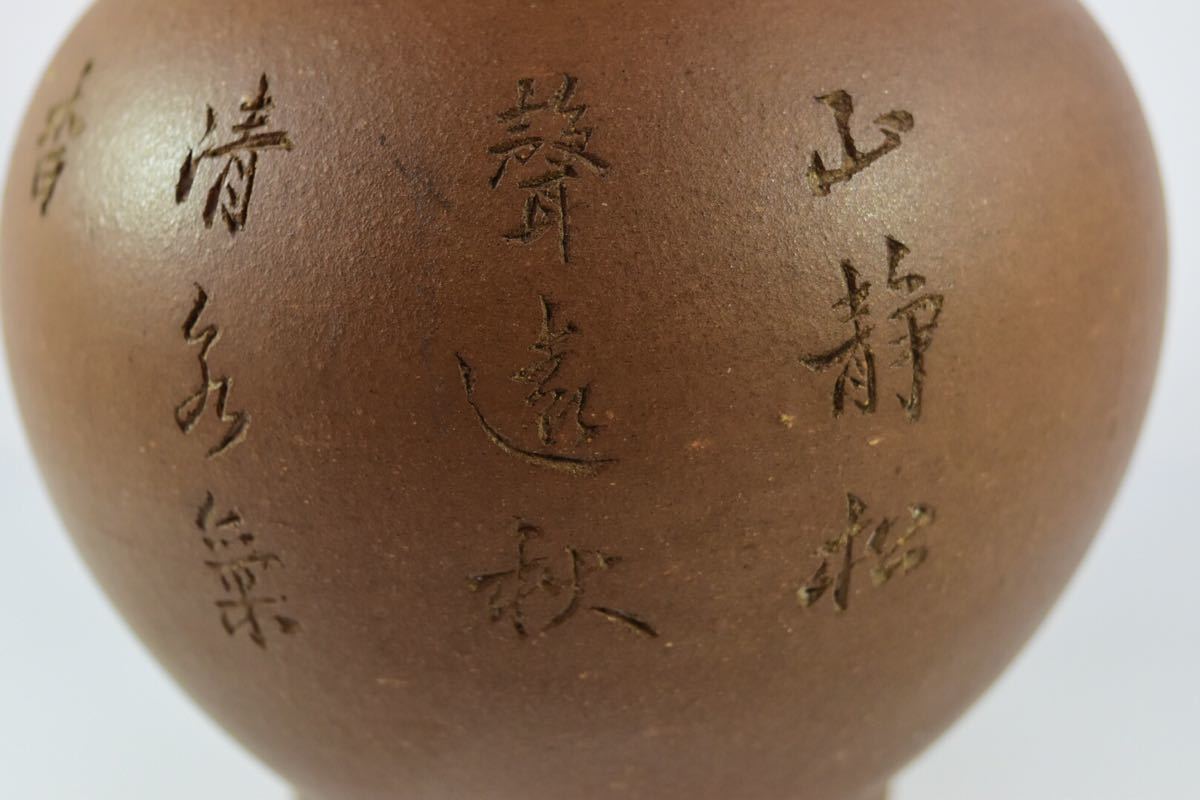 山静松
聲遠秋
清泉氣
香